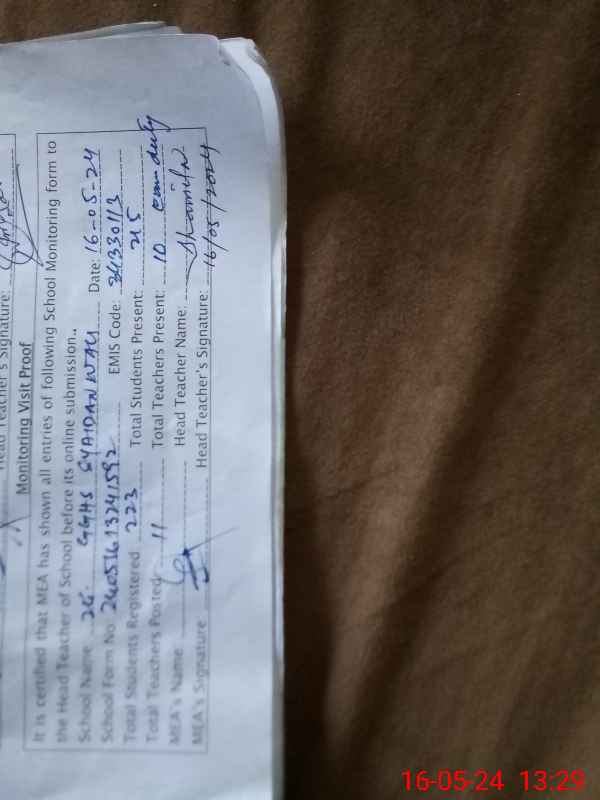 Head Teacher's Signature:
Monitoring Visit Proof
It is certified that MEA has shown all entries of following School Monitoring form to
the Head Teacher of School before its online submission..
School Name: 26. GGHS GYAIDAN WALI Date: 16-05-24
School Form No 24051613241592 EMIS Code: 34330113
Total Students Registered 223 Total Students Present: 215
Total Teachers Posted: 11 Total Teachers Present: 10 Exam duty
MEA's Name Head Teacher Name: Shamila
MEA's Signature Head Teacher's Signature: 16/05/2024
16-05-24 13:29